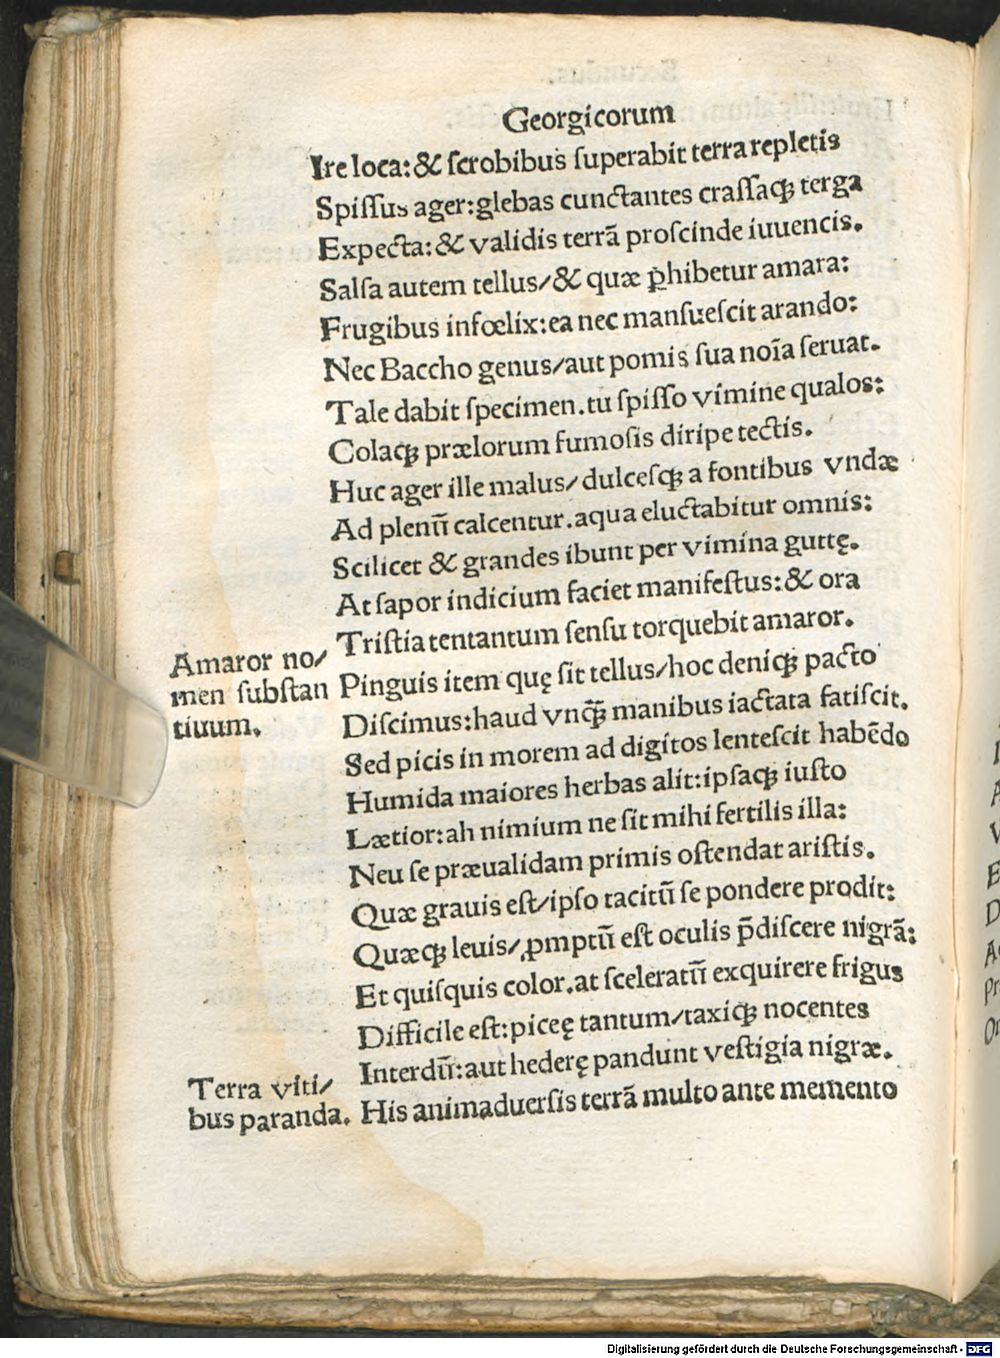 Georgicorum
Ire loca: & ſcrobibus ſuperabit terra repletis
Spiſſus ager: glebas cunctantes craſſaqꝫ terga
Expecta: & validis terrā proſcinde iuuencis.
Salſa autem tellus/ & quæ p̄hibetur amara:
Frugibus infœlix: ea nec manſueſcit arando:
Nec Baccho genus/ aut pomis ſua noīa ſeruat.
Tale dabit ſpecimen. tu ſpiſſo vimine qualos:
Colaqꝫ prælorum fumoſis diripe tectis.
Huc ager ille malus/ dulceſqꝫ a fontibus vndæ
Ad plenū calcentur. aqua eluctabitur omnis:
Scilicet & grandes ibunt per vimina guttę.
At ſapor indicium faciet manifeſtus: & ora
Triſtia tentantum ſenſu torquebit amaror.
Amaror no/
men ſubſtan
tiuum.
Pinguis item quę ſit tellus/ hoc deniqꝫ pacto
Diſcimus: haud vnqꝫ̄ manibus iactata fatiſcit.
Sed picis in morem ad digitos lenteſcit habēdo
Humida maiores herbas alit: ipſaqꝫ iuſto
Lætior: ah nimium ne ſit mihi fertilis illa:
Neu ſe præualidam primis oſtendat ariſtis.
Quæ grauis eſt/ ipſo tacitū ſe pondere prodit:
Quæqꝫ leuis/ ꝓmptū eſt oculis p̄diſcere nigrā:
Et quiſquis color. at ſceleratū exquirere frigus
Difficile eſt: piceę tantum/ taxiqꝫ nocentes
Interdū: aut hederę pandunt veſtigia nigræ.
Terra viti/
bus paranda.
His animaduerſis terrā multo ante memento
Digitalisierung gefördert durch die Deutsche Forschungsgemeinschaft - DFG